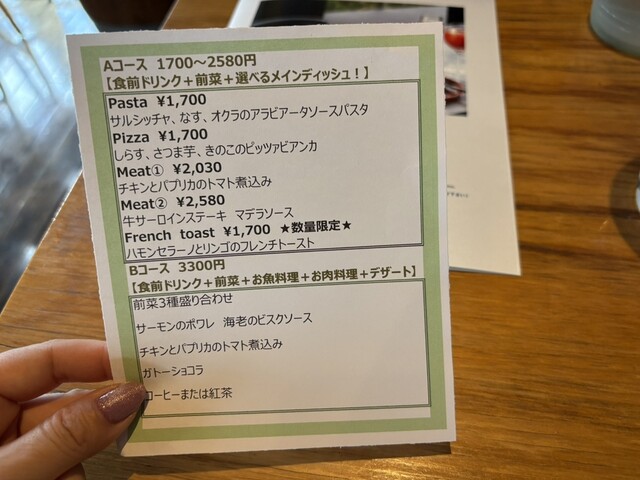 Aコース 1700～2580円
【食前ドリンク＋前菜＋選べるメインディッシュ！】
Pasta ¥1,700
サルシッチャ、なす、オクラのアラビアータソースパスタ
Pizza ¥1,700
しらす、さつま芋、きのこのピッツァビアンカ
Meat① ¥2,030
チキンとパプリカのトマト煮込み
Meat② ¥2,580
牛サーロインステーキ マデラソース
French toast ¥1,700 ★数量限定★
ハモンセラーノとリンゴのフレンチトースト
Bコース 3300円
【食前ドリンク＋前菜＋お魚料理＋お肉料理＋デザート】
前菜3種盛り合わせ
サーモンのポワレ 海老のビスクソース
チキンとパプリカのトマト煮込み
ガトーショコラ
コーヒーまたは紅茶